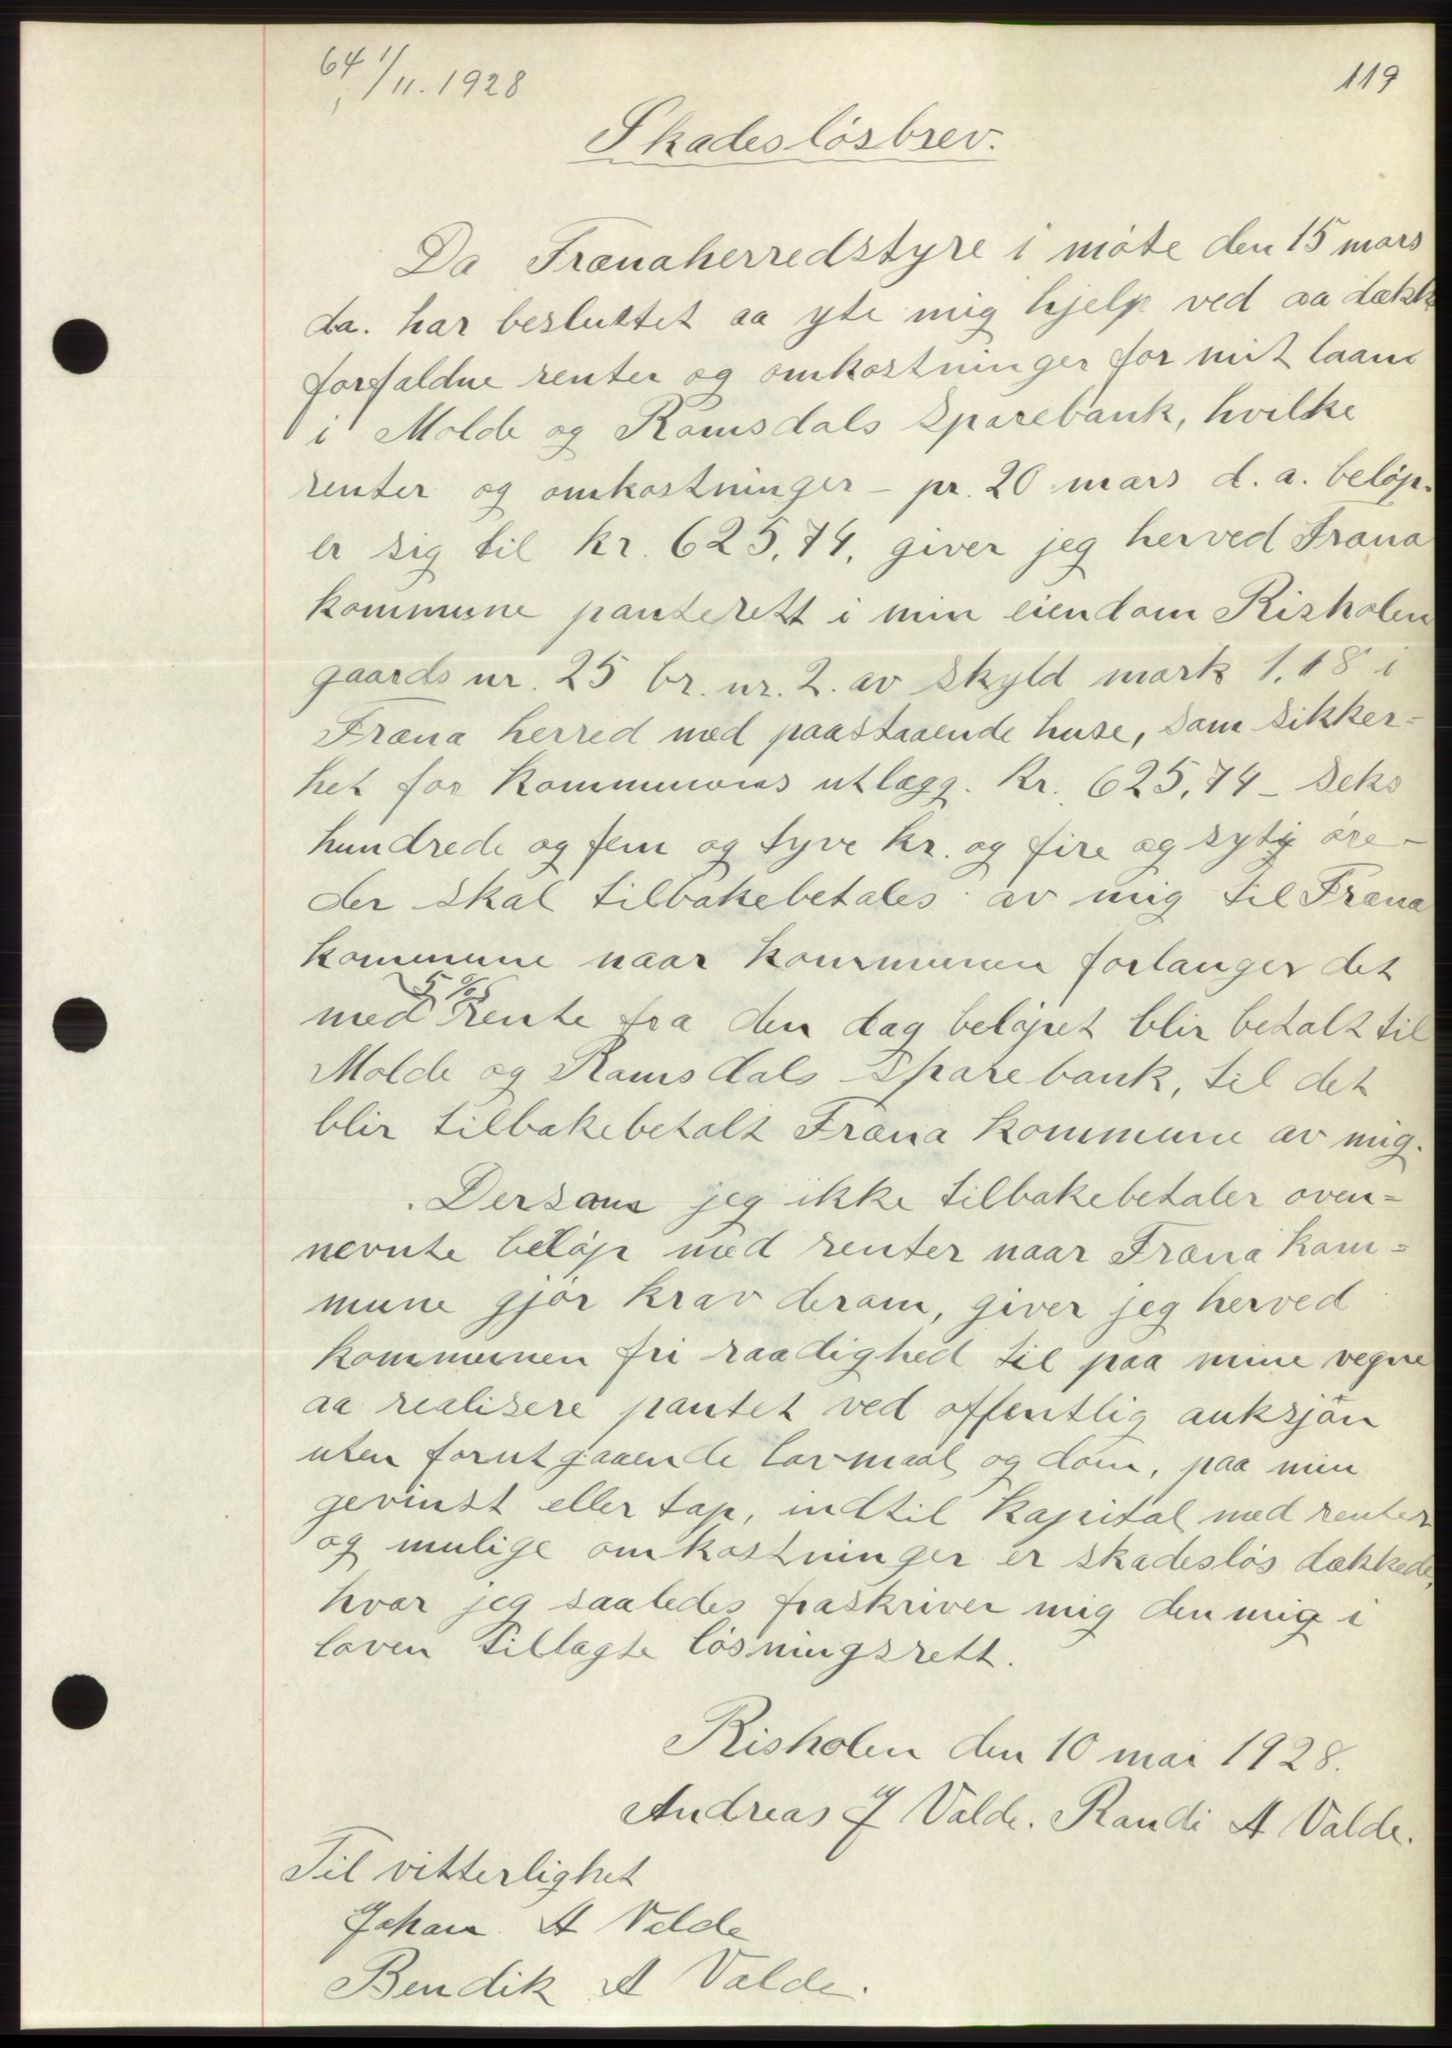 64 1/11. 1928
119
Skadesløsbrev.
Da Frænaherredstyre i møte den 15 mars
d.a. har besluttet aa yte mig hjelp ved aa dækk
forfaldne renter og omkostninger for mit laan
i Molde og Romsdals Sparebank, hvilke
renter og omkostninger – pr. 20 mars d. a. beløp-
er sig til kr. 625,74, giver jeg herved Fræna
kommune panterett i min eiendom Risholen
gaards nr. 25 br. nr. 2. av skyld mark 1,18 i
Fræna herred med paastaaende huse, som sikker=
het for kommunens utlægg. Kr. 625,74 – seks
hundrede og fem og tyve kr. og fire og sytty øre –
der skal tilbakebetales av mig til Fræna
kommune naar kommunen forlanger det
med 5 % rente fra den dag beløpet blir betalt til
Molde og Romsdals Sparebank, til det
blir tilbakebetalt Fræna kommune av mig.
Dersom jeg ikke tilbakebetaler oven=
nevnte beløp med renter naar Fræna kom=
mune gjør krav derom, giver jeg herved
kommunen fri raadighed til paa mine vegne
aa realisere pantet ved offentlig auksjon
uten forutgaaende lovmaal og dom, paa min
gevinst eller tap, indtil kapital med renter
og mulige omkostninger er skadesløs dækkede,
hvor jeg saaledes fraskriver mig den mig i
loven tillagte løsningsrett.
Risholen den 10 mai 1928.
Andreas J Valde. Randi A Valde.
Til vitterlighet
Johan A Valde
Bendik A Valde.